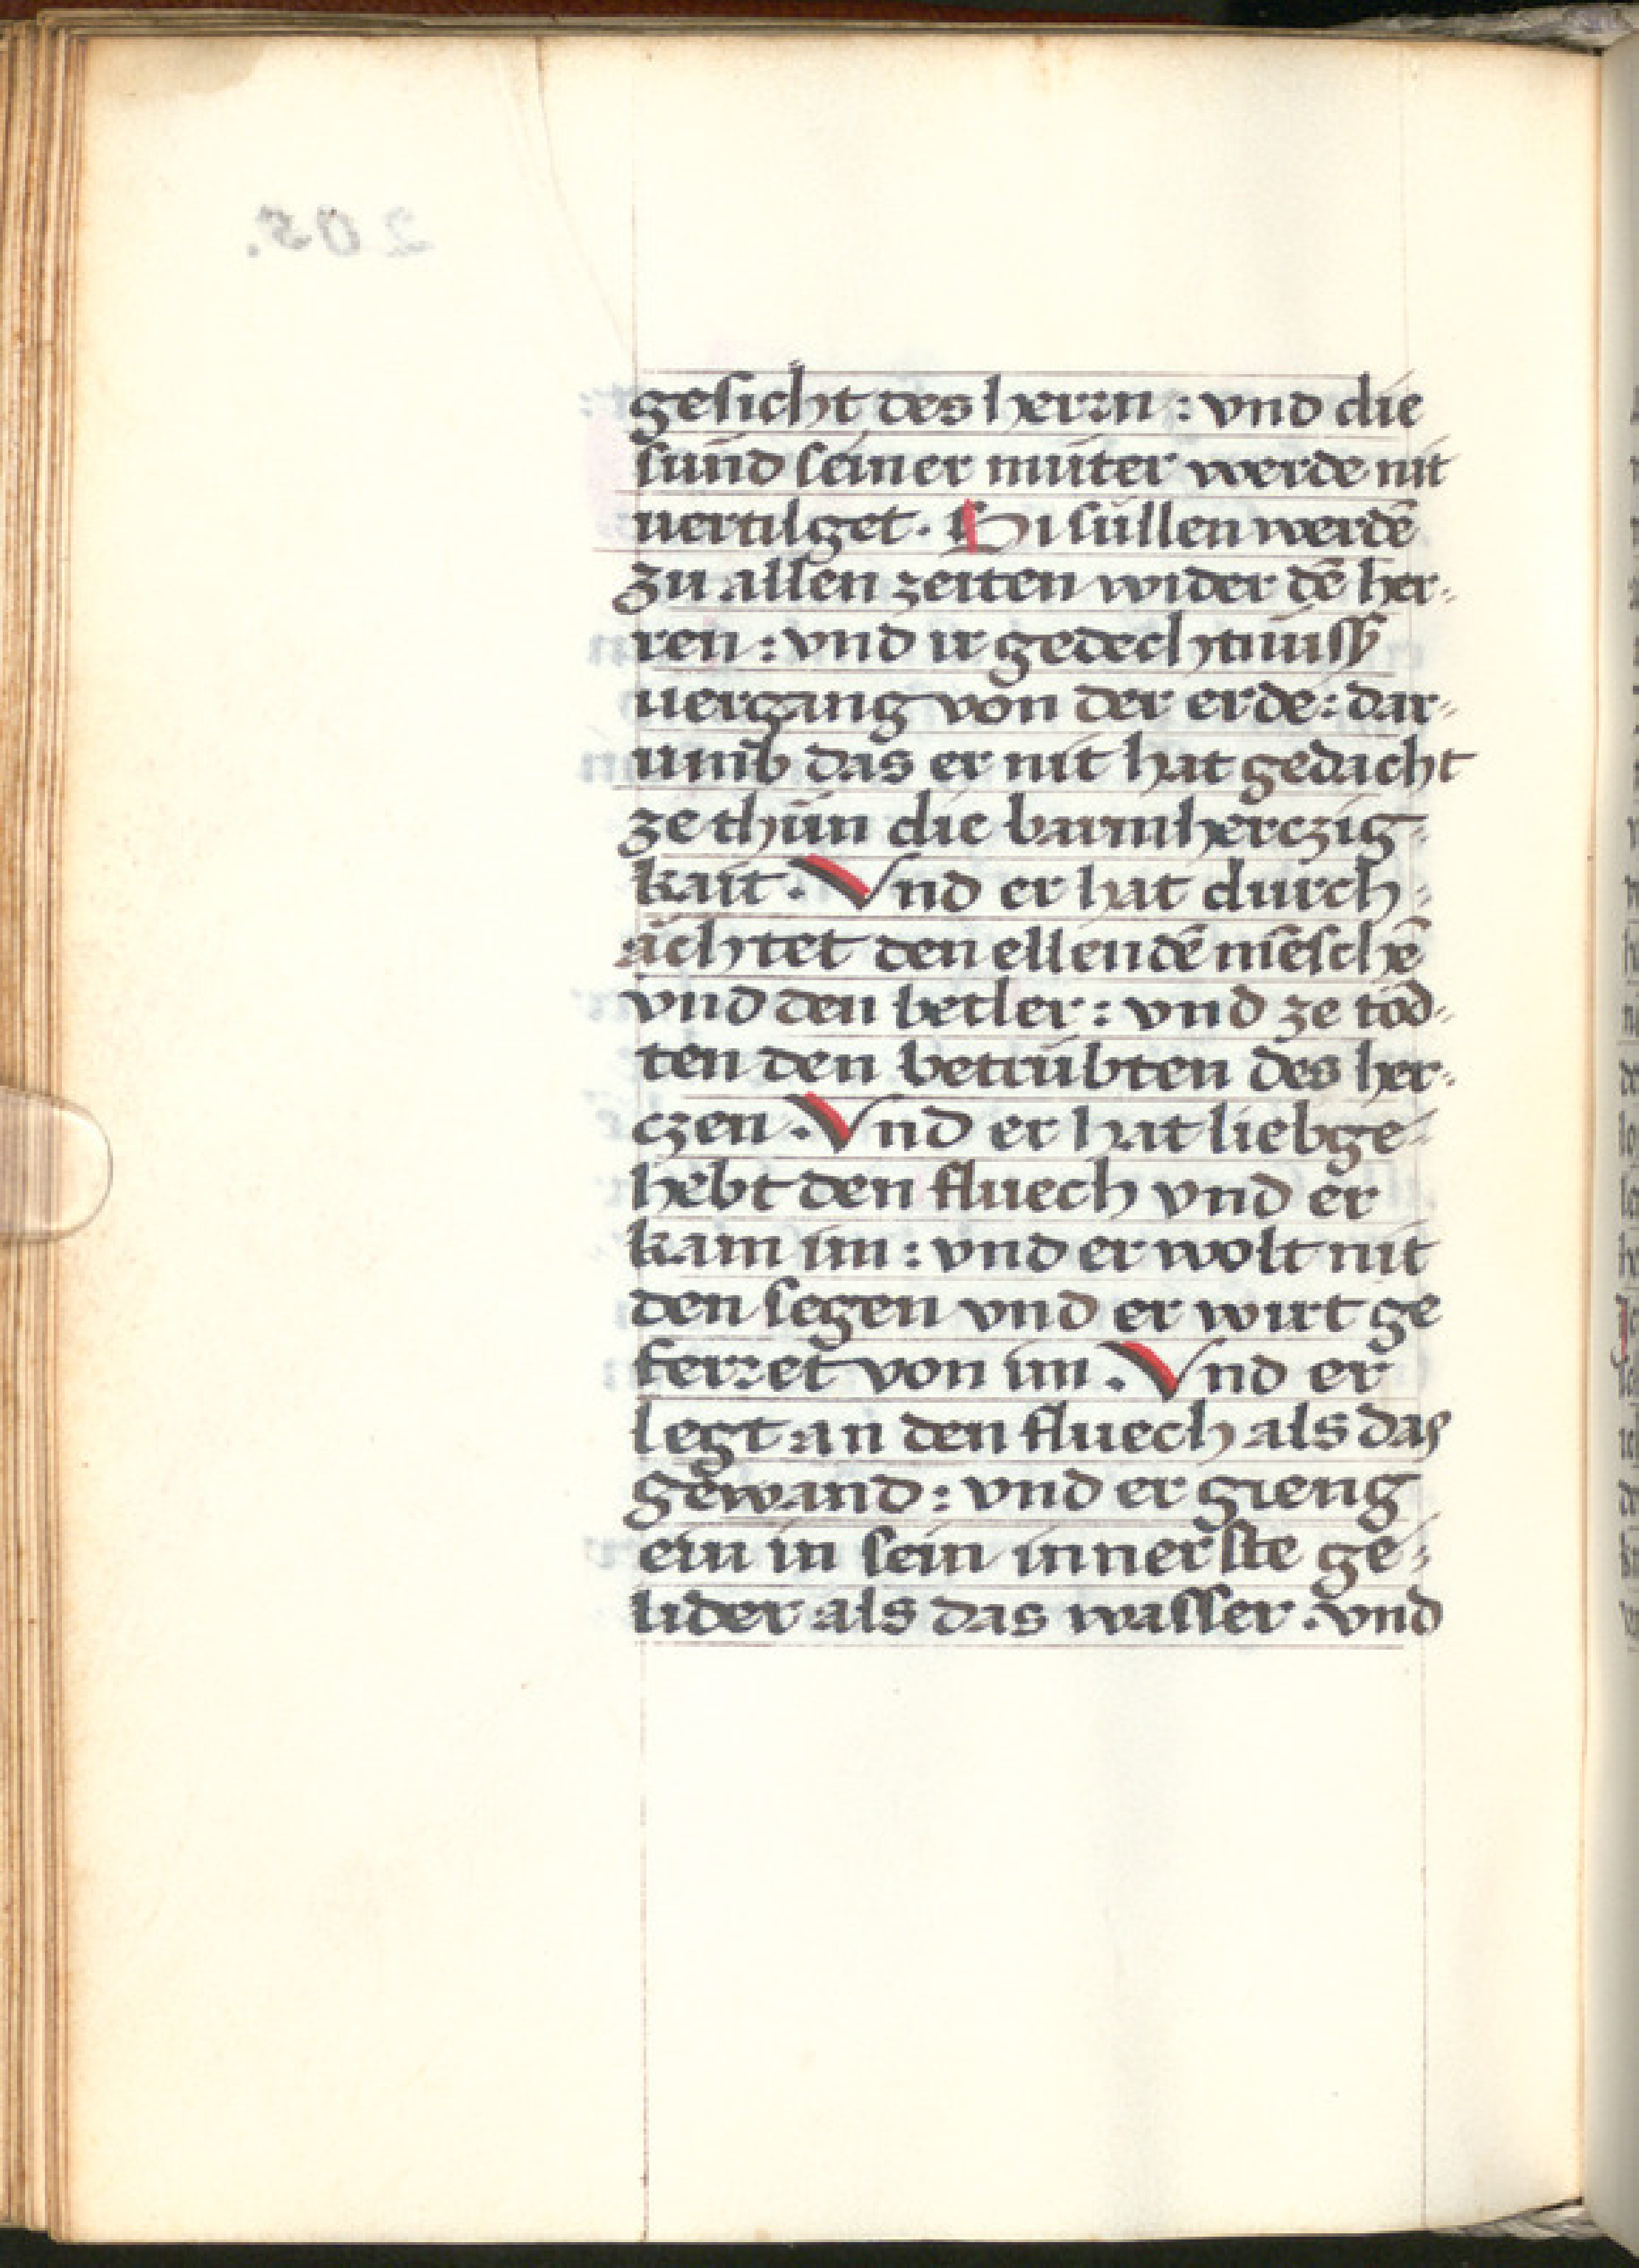 gesicht des herrn : vnd die
sünd seiner müter werde nit
uertilget. Si süllen werdē
zu allen zeiten wider dē her⸗
ren : vnd ir gedechtnüss
uergang von der erde : dar⸗
umb das er nit hat gedacht
ze thün die barmherczig⸗
kait. Vnd er hat durch⸗
ächtet den ellendē mēschē
vnd den betler : vnd ze töd⸗
ten den betrübten des her⸗
czen. Vnd er hat liebge⸗
hebt den fluech vnd er
kam im : vnd er wolt nit
den segen vnd er wirt ge
ferret von im. Vnd er
legt an den fluech als das
gewand : vnd er gieng
ein in sein innerste ge⸗
lider als das wasser. vnd